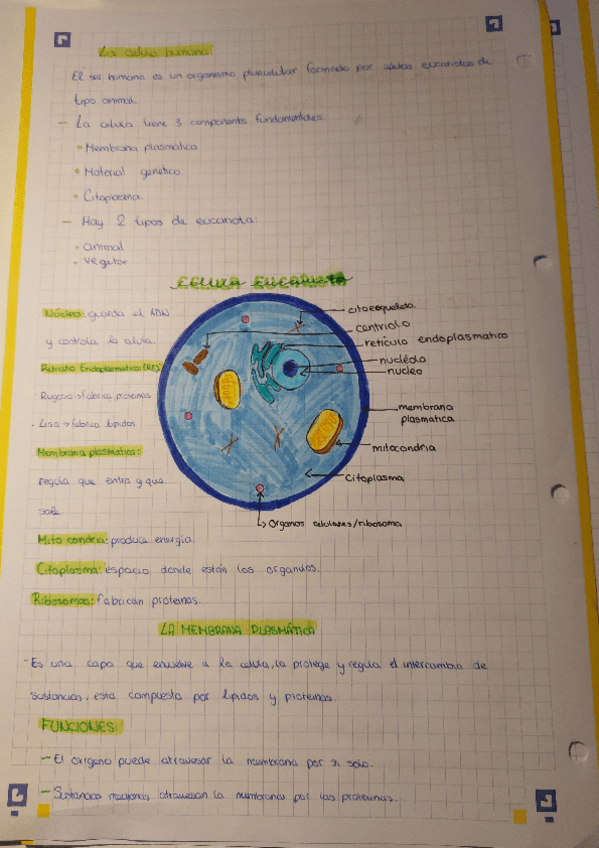 La celula humana:
El ser humano es un organismo pluricelular formado por celulas eucariotas de
tipo animal.
- La celula tiene 3 componentes fundamentales.
• Membrana plasmatica
• Material genetico
• Citoplasma
- Hay 2 tipos de eucariota:
• animal
• vegetal
CELULA EUCARIOTA
Núcleo: guarda el ADN
y controla la celula.
Reticulo Endoplasmatico (RE)
Rugoso → fabrica proteinas
· Liso → fabrica lipidos
Membrana plasmatica:
regula que entra y que
sale
Mitocondria: produce energía.
Citoplasma: espacio donde están los organulos.
Ribosomas: fabrican proteinas.
citoesqueleto
centriolo
retículo endoplasmatico
nucléolo
nucleo
membrana
plasmatica
mitocondria
Citoplasma
Organos celulares/ribosoma
LA MEMBRANA PLASMÁTICA
- Es una capa que envuelve a la celula, la protege y regula el intercambio de
sustancias, esta compuesta por lipidos y proteinas.
FUNCIONES
- El oxigeno puede atravesar la membrana por si solo.
- Sustancias atraviesan la membrana por las proteinas.